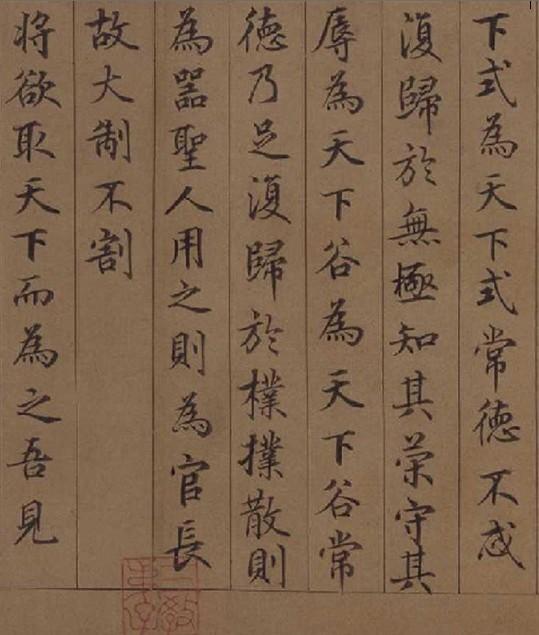 下式為天下式常德不忒
復歸於無極知其榮守其
辱為天下谷為天下谷常
德乃足復歸於樸樸散則
為器聖人用之則為官長
故大制不割
將欲取天下而為之吾見